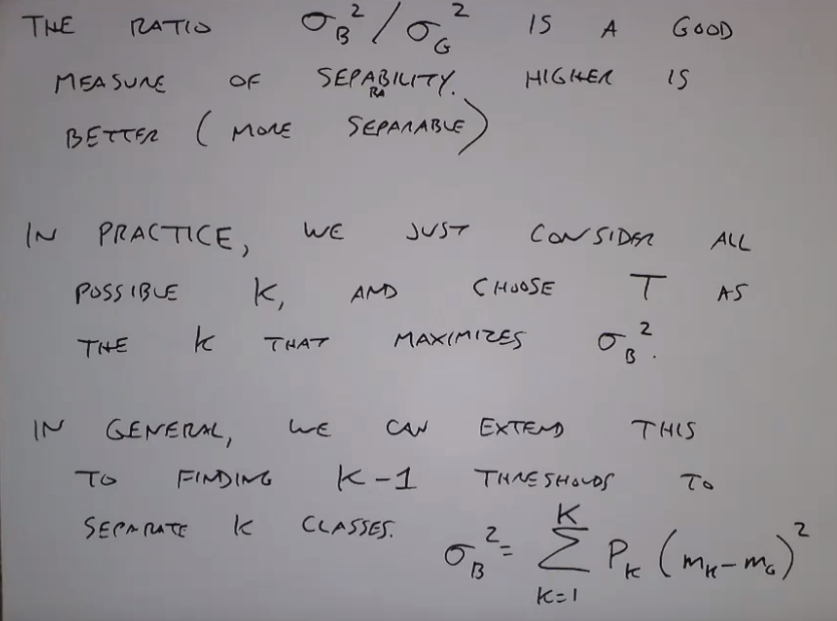 THE RATIO σ_B² / σ_G² IS A GOOD
MEASURE OF SEPABILITY. HIGHER IS
RA
BETTER (MORE SEPARABLE)
IN PRACTICE, WE JUST CONSIDER ALL
POSSIBLE K, AND CHOOSE T AS
THE K THAT MAXIMIZES σ_B².
IN GENERAL, WE CAN EXTEND THIS
TO FINDING K-1 THRESHOLDS TO
SEPARATE K CLASSES.
σ_B² = ∑_{K=1}^{K} P_K (m_K - m_G)²